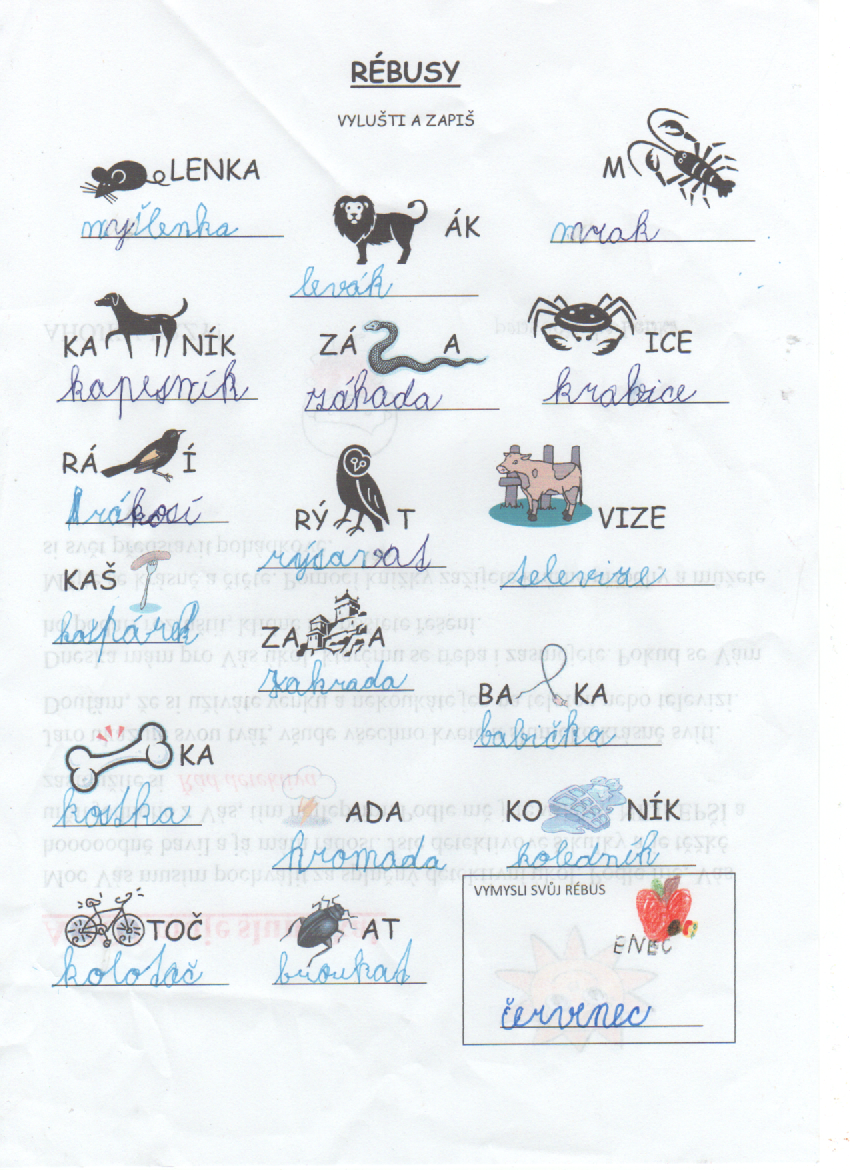 RÉBUSY
VYLUŠTI A ZAPIŠ
LENKA
myšlenka
ÁK
levák
M
mrak
KA NÍK
kapesník
ZÁ A
záhada
ICE
krabice
RÁ Í
rákosí
RÝ T
rýsovat
VIZE
televize
KAŠ
kašpárek
ZA A
zahrada
BA KA
babička
KA
kostka
ADA
hromada
KO NÍK
koledník
TOČ
kolotoč
AT
broukat
VYMYSLI SVŮJ RÉBUS
ENEC
červenec